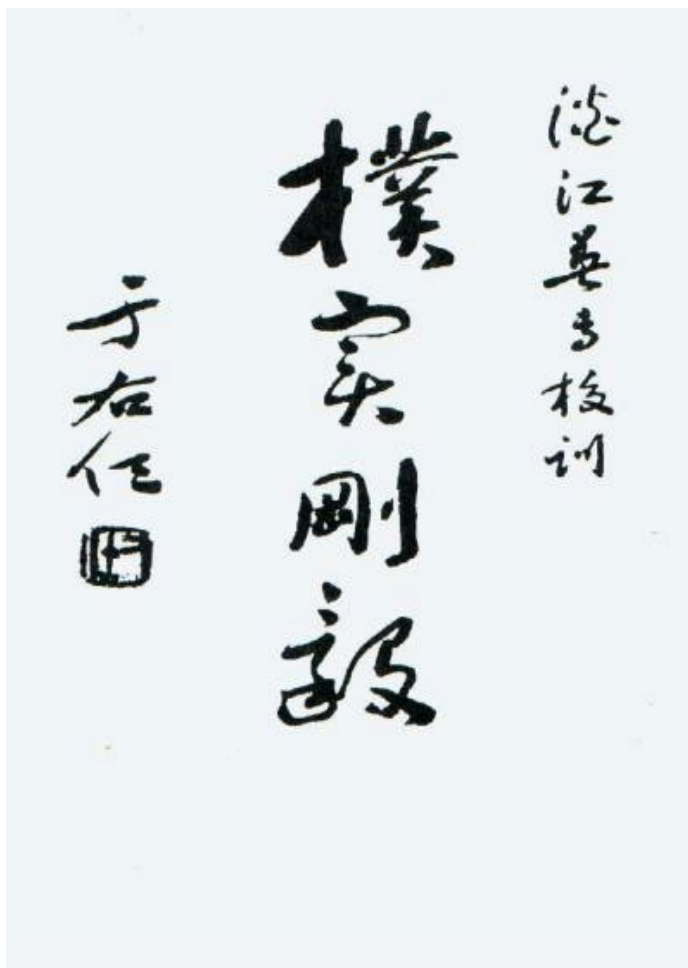 淡江英专校訓
樸实剛毅
于右任